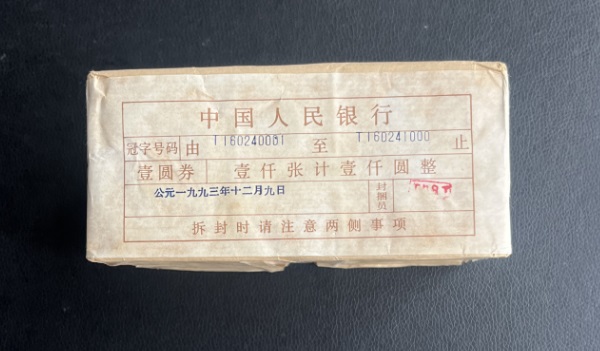 中国人民银行
冠字号码 由 TT60240001 至 TT60241000 止
壹圆券 壹仟张计壹仟圆整
公元一九九三年十二月九日 封捆员
拆封时请注意两侧事项